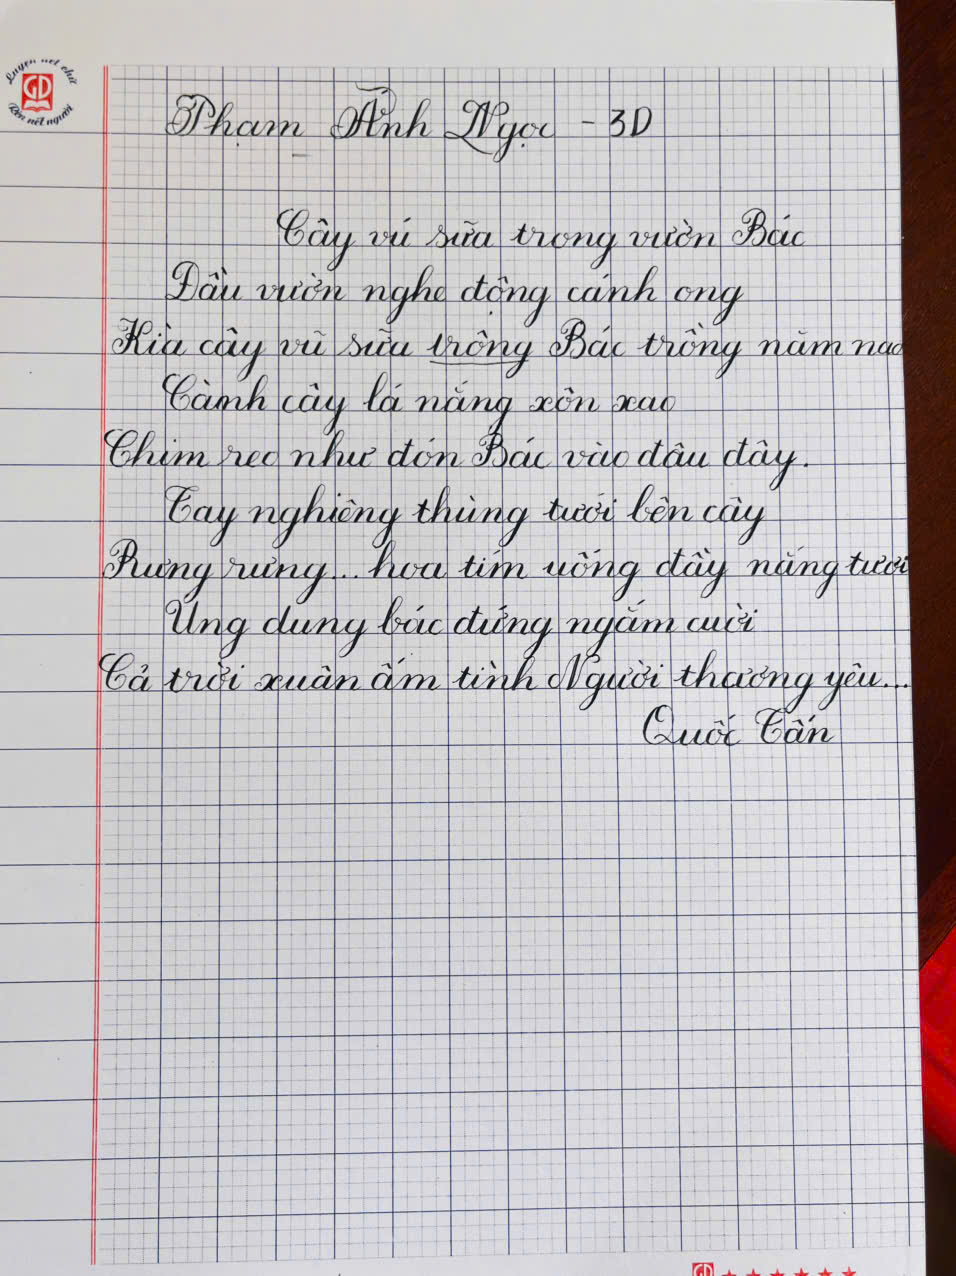 Luyện nét chữ
GD
Rèn nết người
Phạm Ánh Ngọc - 3D
Cây vú sữa trong vườn Bác
Đầu vườn nghe động cánh ong
Kìa cây vũ sữa trông Bác trồng năm nao
Cành cây lá nắng xôn xao
Chim reo như đón Bác vào đâu đây.
Tay nghiêng thùng tưới bên cây
Rưng rưng... hoa tím uống đầy nắng tươi
Ung dung bác đứng ngắm cười
Cả trời xuân ấm tình Người thương yêu...
Quốc Tấn
GD